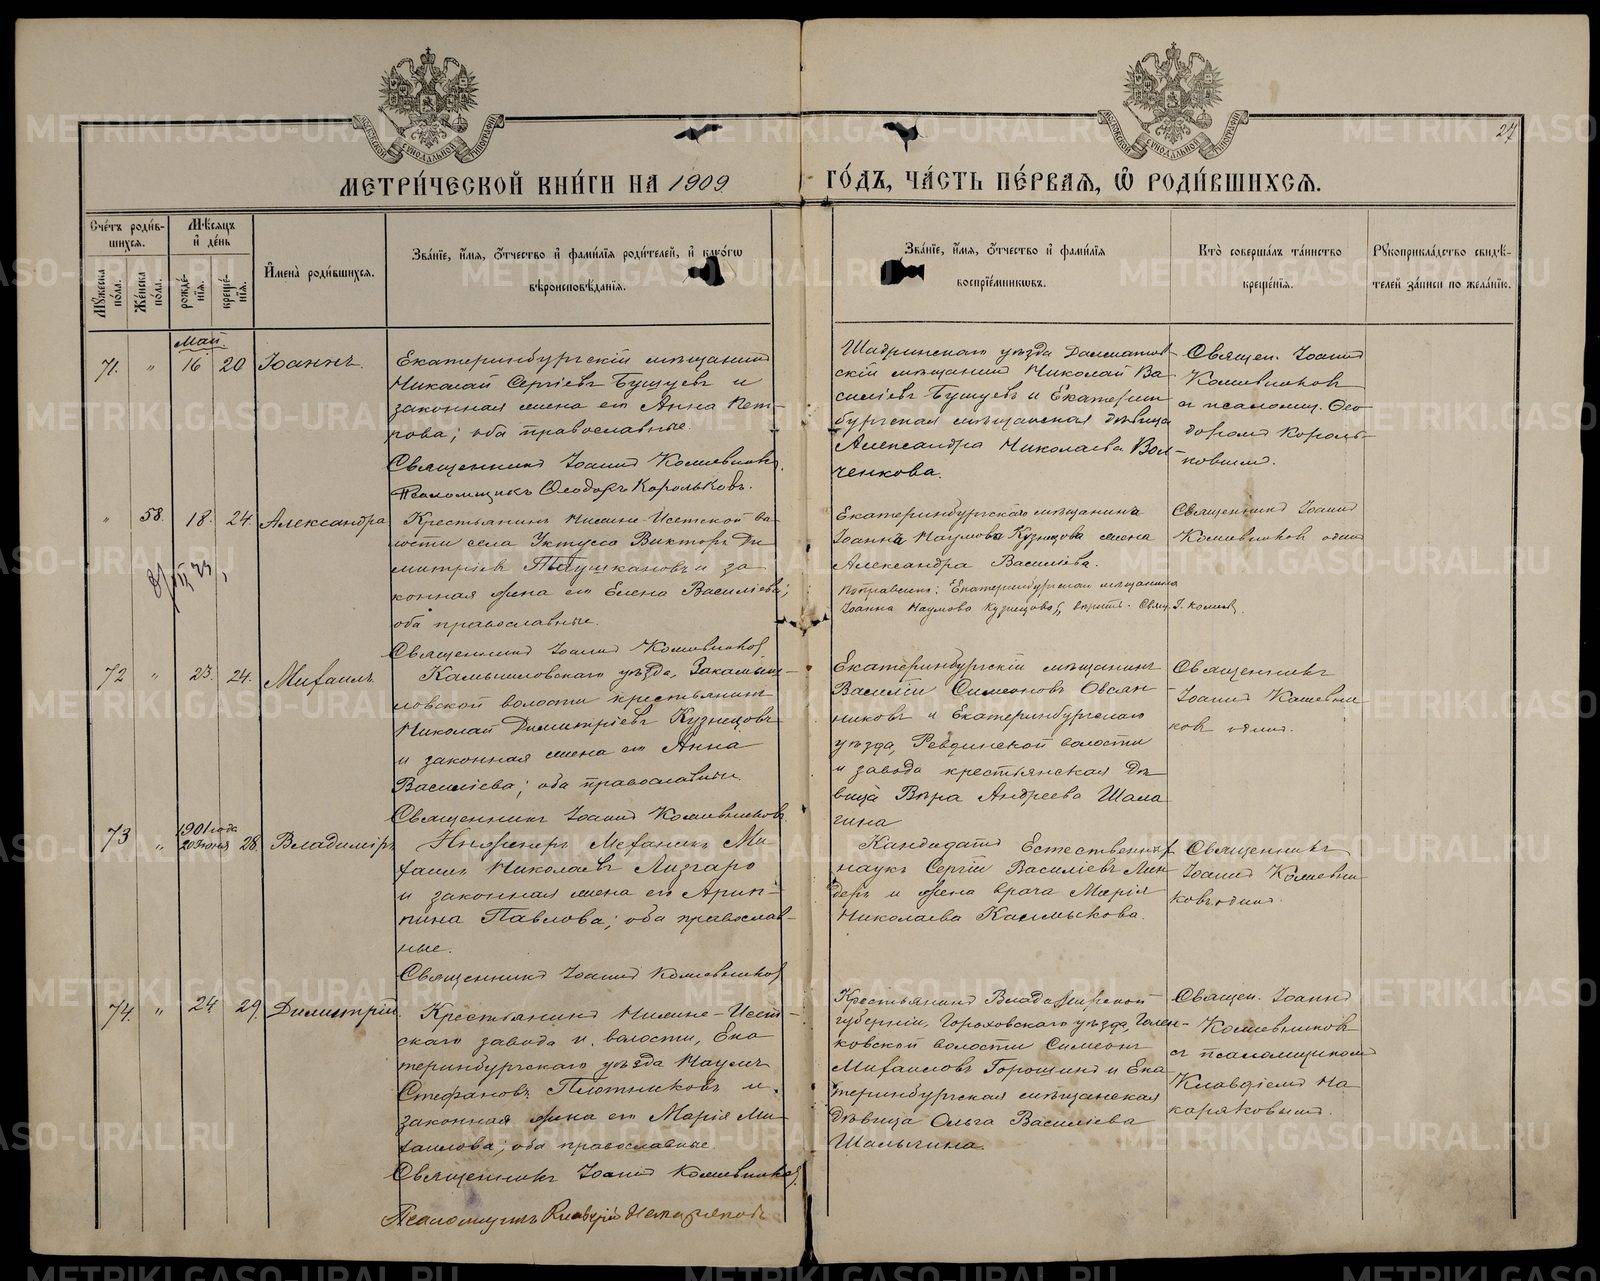 МЕТРИ́ЧЕСКОЙ КНИ́ГИ НА 1909
ГО́ДЪ, ЧА́СТЬ ПЕ́РВАЯ, Ѡ РОДИ́ВШИХСЯ.
27
Сче́тъ роди́в-
шихся.
Мꙋжеска по́ла.
Же́нска по́ла.
Мѣ́сяцъ
и҆ де́нь
рожде́-
нїя.
креще́-
нїя.
И҆мена̀ роди́вшихся.
Зва́нїе, и҆́мя, ѻ҆́тчество и҆ фами́лїя роди́телей, и҆ како́гѡ
вѣроисповѣ́данїя.
Зва́нїе, и҆́мя, ѻ҆́тчество и҆ фами́лїя
воспрїе́мникѡвъ.
Кто̀ соверша́лъ та́инство
креще́нїя.
Рꙋкоприкла́дство свидѣ́-
телей за́писи по жела́нїю.
Май
71. " 16 20 Іоаннъ.
Екатеринбургскій мѣщанинъ
Николай Сергіевъ Бушуевъ и
законная жена его Анна Пет-
рова; оба православные.
Священникъ Іоаннъ Кожевниковъ.
Псаломщикъ Ѳеодоръ Корольковъ.
Шадринскаго уѣзда Далматов-
скій мѣщанинъ Николай Ва-
силіевъ Бушуевъ и Екатерин-
бургская мѣщанская дѣвица
Александра Николаева Вол-
ченкова.
Священ. Іоаннъ
Кожевниковъ
съ псаломщ. Ѳео-
доромъ Король-
ковымъ.
" 58. 18. 24. Александра
Крестьянинъ Нижне-Исетской во-
лости села Уктусса Викторъ Ди-
митріевъ и за-
конная жена его Елена Василіева;
оба православные.
Священникъ Іоаннъ Кожевниковъ
Екатеринбургскаго мѣщанина
Іоанна Наумова Кузнецова жена
Александра Василіева.
Екатеринбургскаго мѣщанина
Іоанна Наумова Кузнецова, вѣрить. Свящ. І. Кожев.
Священникъ Іоаннъ
Кожевниковъ одинъ
72 " 23. 24. Михаилъ.
Камышловскаго уѣзда, Закамыш-
ловской волости крестьянинъ
Николай Димитріевъ Кузнецовъ
и законная жена его Анна
Василіева; оба православные.
Священникъ Іоаннъ Кожевниковъ
Екатеринбургскій мѣщанинъ
Василій Симеоновъ Овсян-
никовъ и Екатеринбургскаго
уѣзда, Ревдинской волости
и завода крестьянская дѣ-
вица Вѣра Андреева Шала-
гина
Священникъ
Іоаннъ Кожевни-
ковъ одинъ.
73 " 1901 года
20 Іюня 28. Владиміръ
Инженеръ Механикъ Ми-
хаилъ Николаевъ Лизгаро
и законная жена его Агрип-
пина Павлова; оба православ-
ные.
Священникъ Іоаннъ Кожевниковъ
Кандидатъ Естественныхъ
наукъ Сергій Василіевъ Лин-
деръ и жена врача Марія
Николаева Калмыкова.
Священникъ
Іоаннъ Кожевни-
ковъ одинъ.
74. " 24 29. Димитрій
Крестьянинъ Нижне-Исет-
скаго завода и волости, Ека-
теринбургскаго уѣзда Наумъ
Стефановъ Плотниковъ и
законная жена его Марія Ми-
хаилова; оба православные.
Священникъ Іоаннъ Кожевниковъ.
Псаломщикъ Клавдій Накаряковъ
Крестьянинъ Владимирской
губерніи, Гороховскаго уѣзда,
ковской волости Симеонъ
Михаиловъ Горошинъ и Ека-
теринбургская мѣщанская
дѣвица Ольга Василіева
Шалыгина.
Священ. Іоаннъ
Кожевниковъ
съ псаломщикомъ
Клавдіемъ На-
каряковымъ.